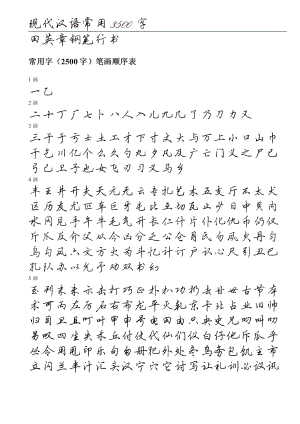 现代汉语常用3500字
田英章钢笔行书
常用字（2500字）笔画顺序表
1画
一乙
2画
二十丁厂七卜八人入儿九几了乃刀力又
3画
三干于亏士土工才下寸丈大与万上小口山巾
千乞川亿个么久勺丸夕凡及广亡门义之尸已
弓己卫子也女飞刃习叉马乡
4画
丰王井开夫天无元云专扎艺木五支厅不太犬
区历尤友匹车巨牙屯比互切瓦止少日中贝内
水冈见手午牛毛气升长仁什片仆化仇币仍仅
斤爪反介父从今凶分乏公仓月氏勿风欠丹匀
乌勾凤六文方火为斗忆计订户认心尺引丑巴
孔队办以允予劝双书幻
5画
玉刊末未示击打巧正扑扒功扔去甘世古节本
术可丙左厉石右布龙平灭轧东卡北占业旧帅
归目旦且叮叶甲申号电田由只央史兄叼叫叨
另叹四生失禾丘付仗代仙们仪白仔他斥瓜乎
丛令用甩印乐句匆册犯外处冬鸟务包饥主市
立闪兰半汁汇头汉宁穴它讨写让礼训必议讯